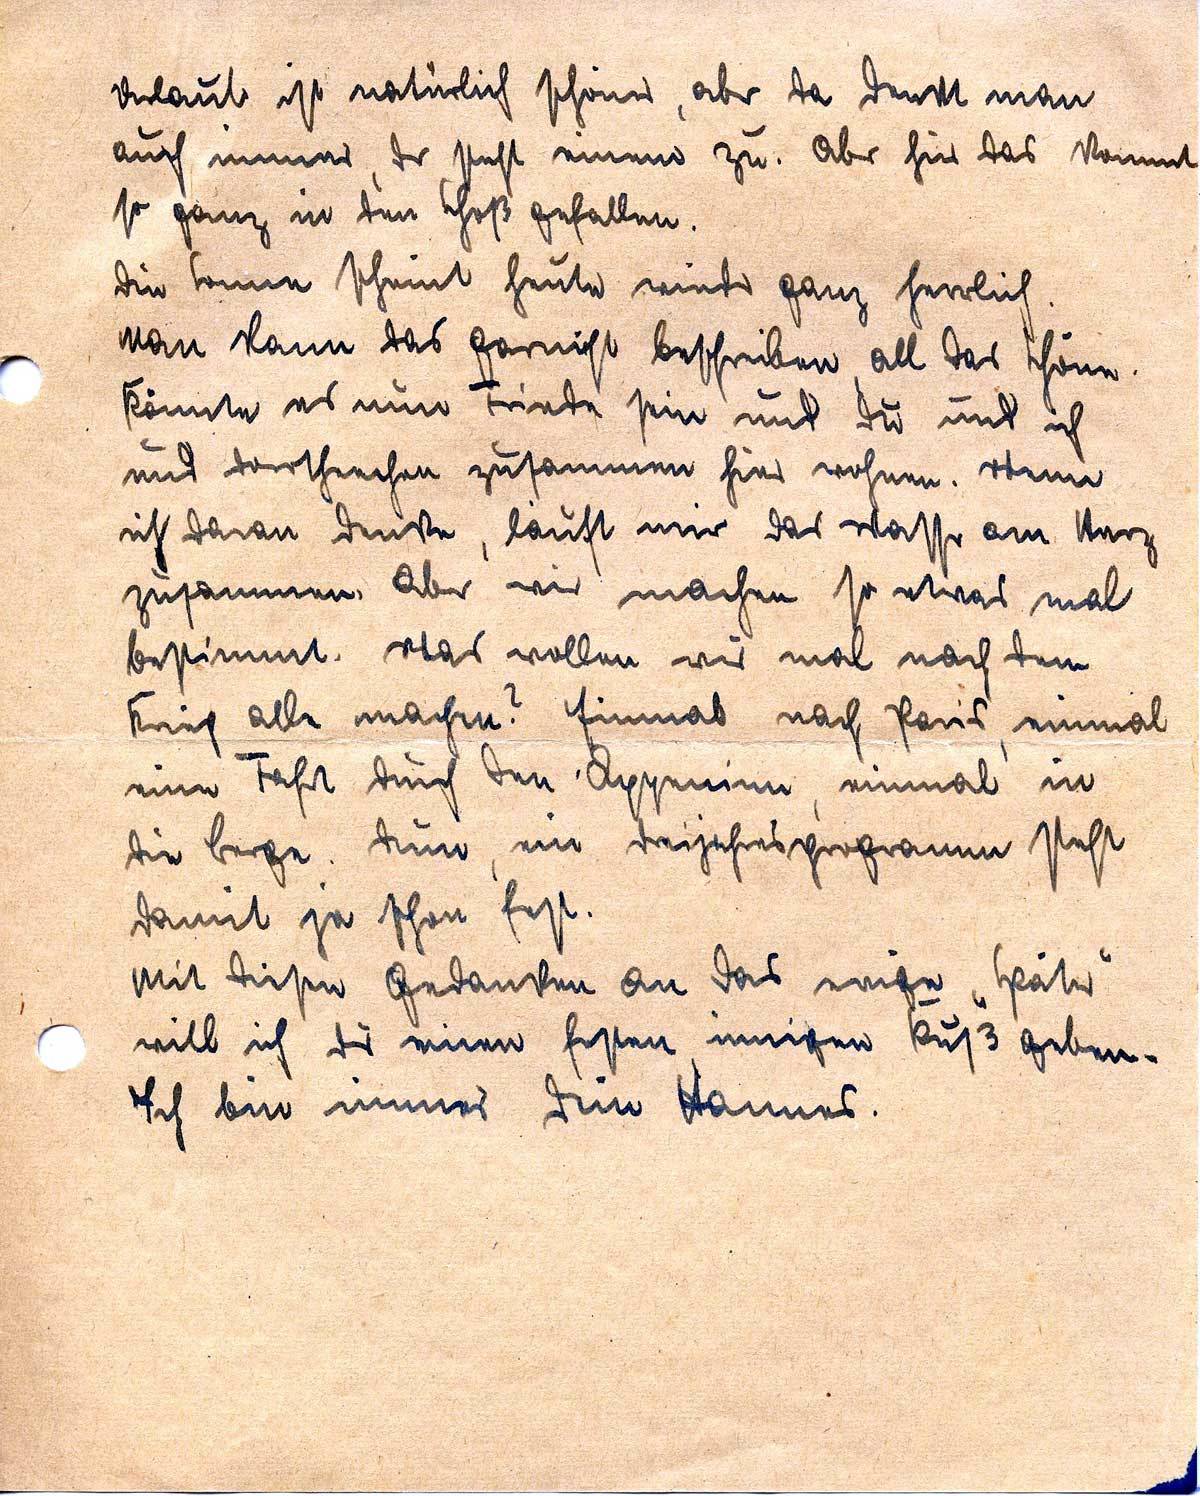 Urlaub ist natürlich schöner, aber da denkt man
auch immer, der steht einem zu. Aber hier das kommt
so ganz in den Schoß gefallen.
Die Sonne scheint heute wieder ganz herrlich.
Man kann das garnicht beschreiben, all das Schöne.
Könnte es nun Friede sein und Du und ich
und Dortheechen zusammen hier wohnen. Wenn
ich daran denke, läuft mir das Wasser am Herz
zusammen. Aber wir machen so etwas mal
bestimmt. Was wollen wir mal nach dem
Krieg alle machen? Einmal nach Paris, einmal
eine Fahrt durch den Appeninn, einmal in
die Berge. Nun, ein Dreijahresprogramm steht
damit ja schon fest.
Mit diesen Gedanken an das ewige „Später"
will ich Dir einen festen, innigen Kuß geben.
Ich bin immer Dein Hannes.